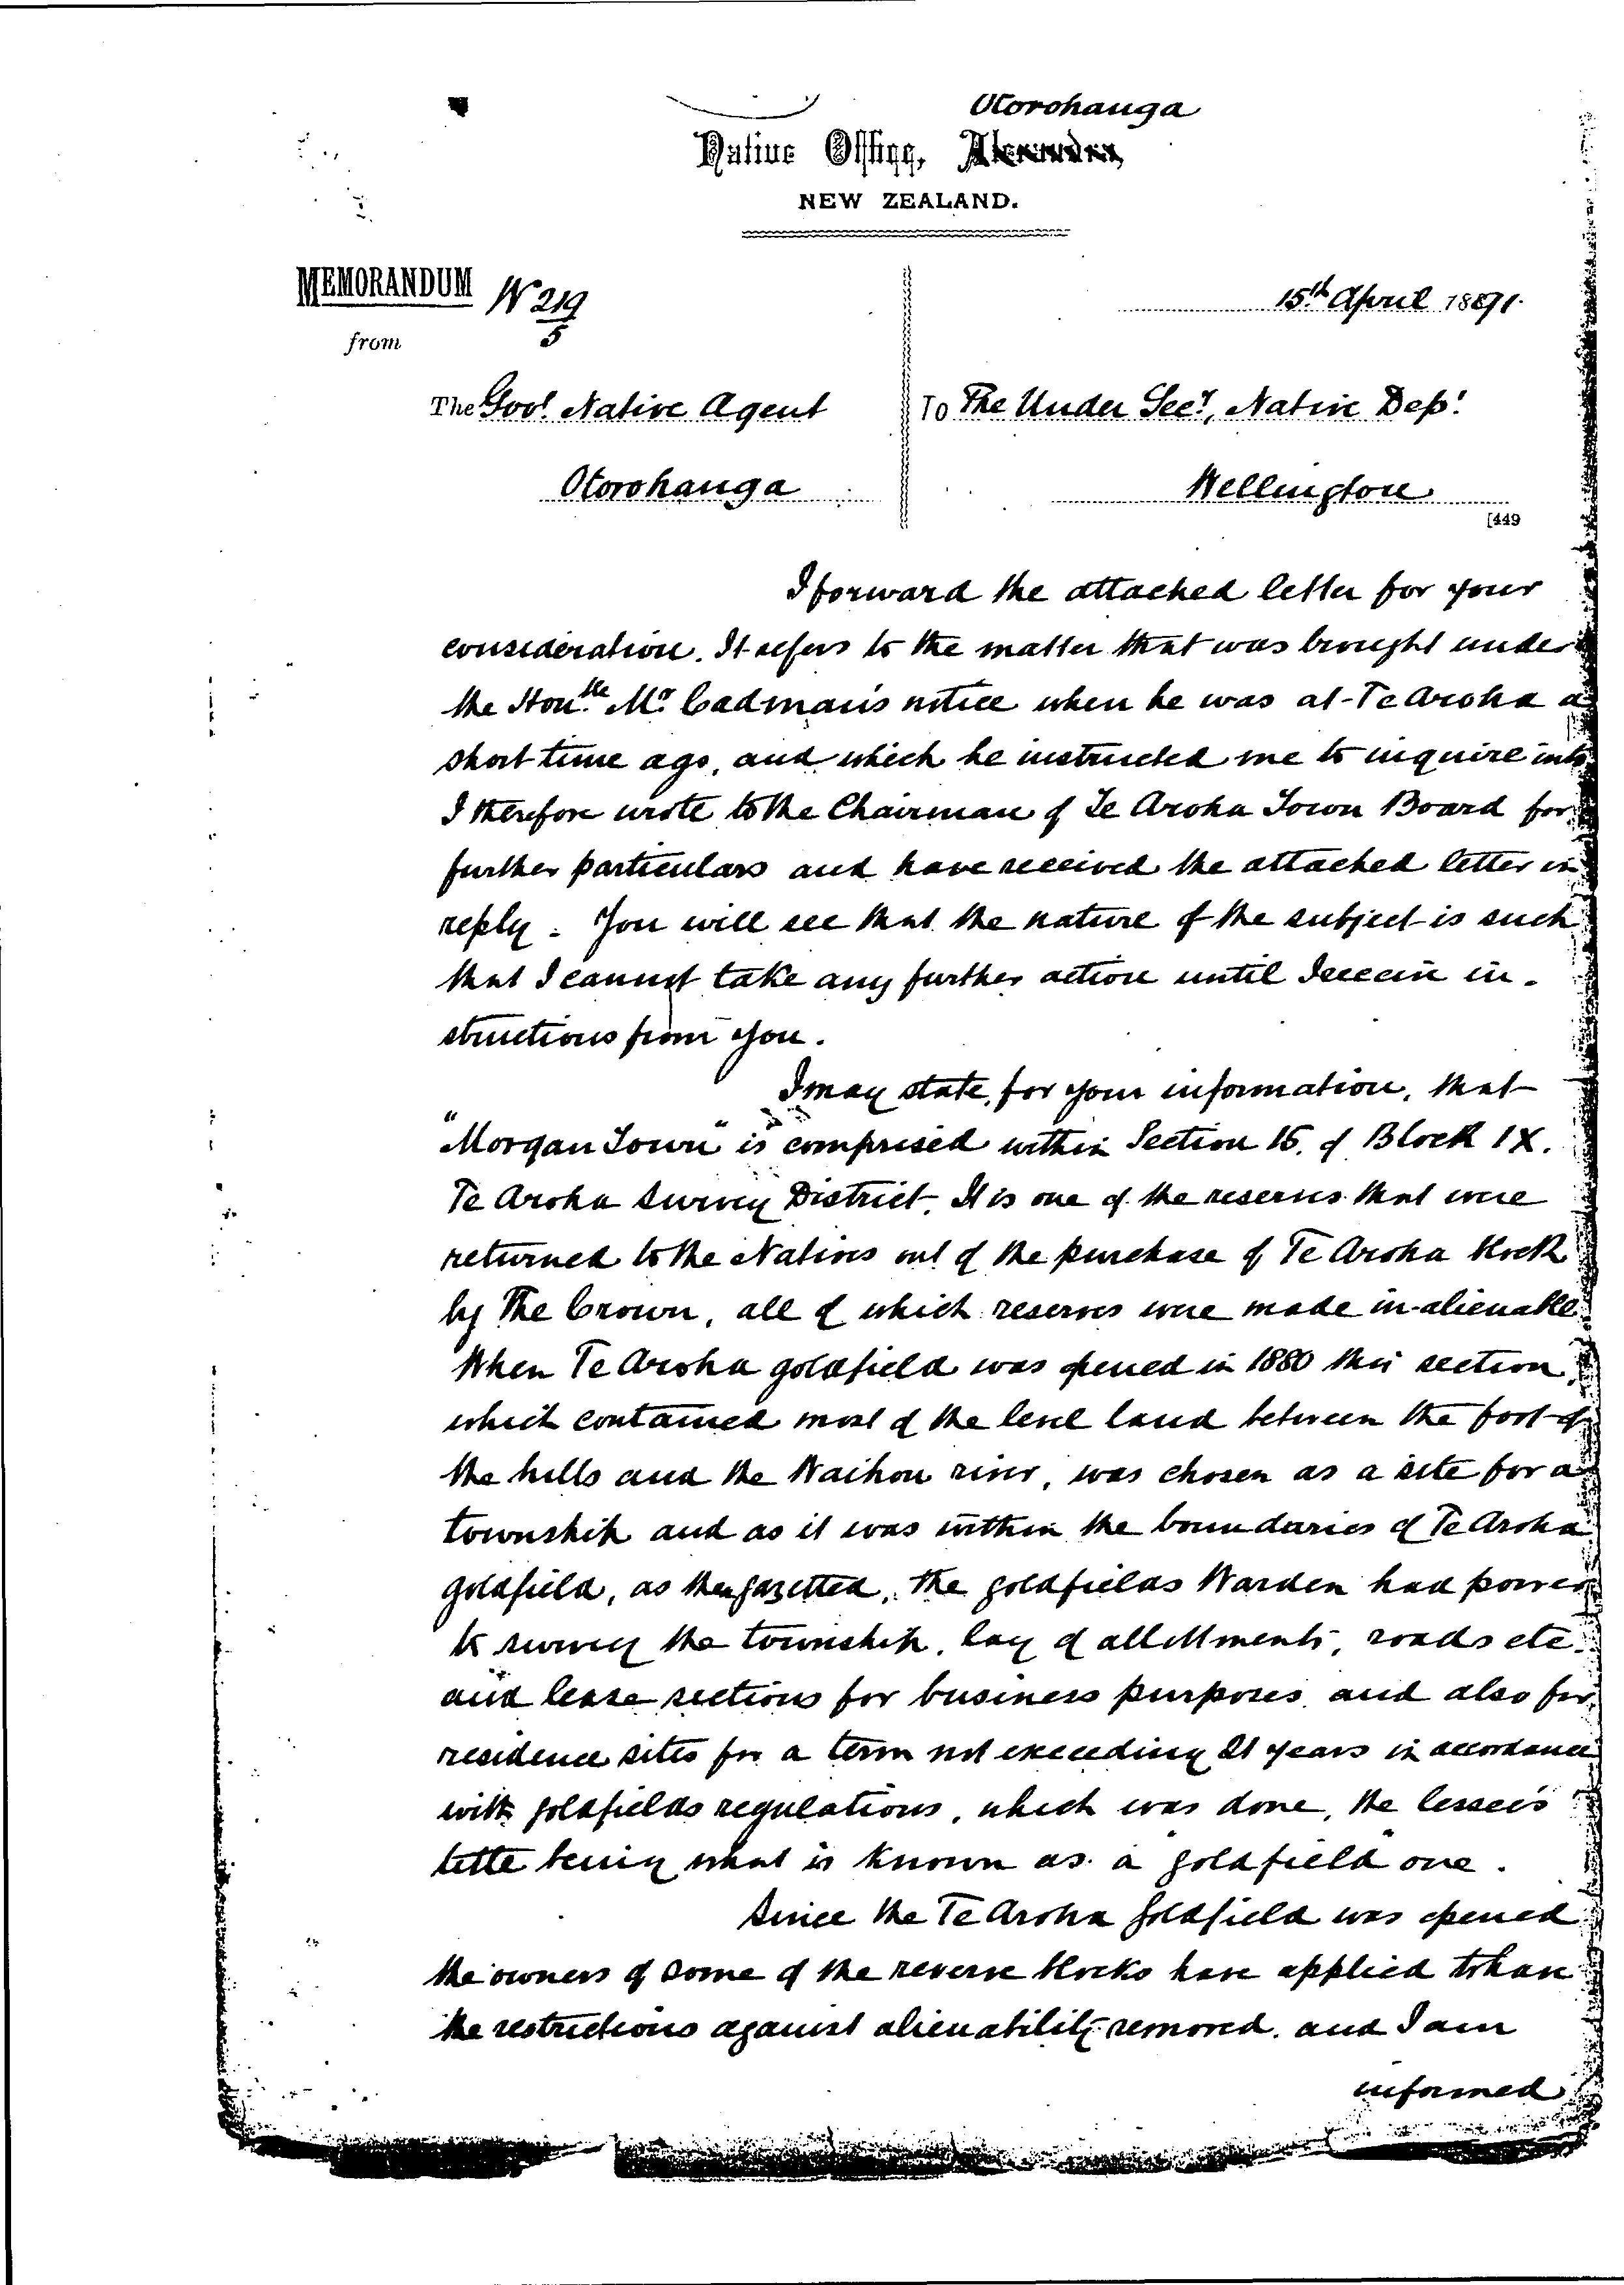 Otorohanga
Native Office, Alexandra,
NEW ZEALAND.
MEMORANDUM N 219/5
from
15th April 1891.
The Govt. Native Agent
To The Under Secy, Native Dept.
Otorohanga
Wellington
[449
I forward the attached letter for your
consideration. It refers to the matter that was brought under
the Honble Mr. Cadman's notice when he was at Te Aroha a
short time ago, and which he instructed me to inquire into
I therefore wrote to the Chairman of Te Aroha Town Board for
further particulars and have received the attached letter in
reply. You will see that the nature of the subject is such
that I cannot take any further action until I receive in-
structions from you.
I may state, for your information, that
"Morgan Town" is comprised within Section 15. of Block IX.
Te Aroha Survey District. It is one of the reserves that were
returned to the Natives out of the purchase of Te Aroha block
by The Crown, all of which reserves were made in-alienable
When Te Aroha goldfield was opened in 1880 this section,
which contained most of the level land between the foot of
the hills and the Waihou river, was chosen as a site for a
township and as it was within the boundaries of Te Aroha
goldfield, as then gazetted, the goldfields Warden had power
to survey the township, lay of allottments, roads etc.
and lease sections for business purposes and also for
residence sites for a term not exceeding 21 years in accordance
with goldfields regulations, which was done, the lessee's
title being what is known as a "goldfield" one.
Since the Te Aroha goldfield was opened
the owners of some of the reserve blocks have applied to have
the restrictions against alienability removed. and I am
informed